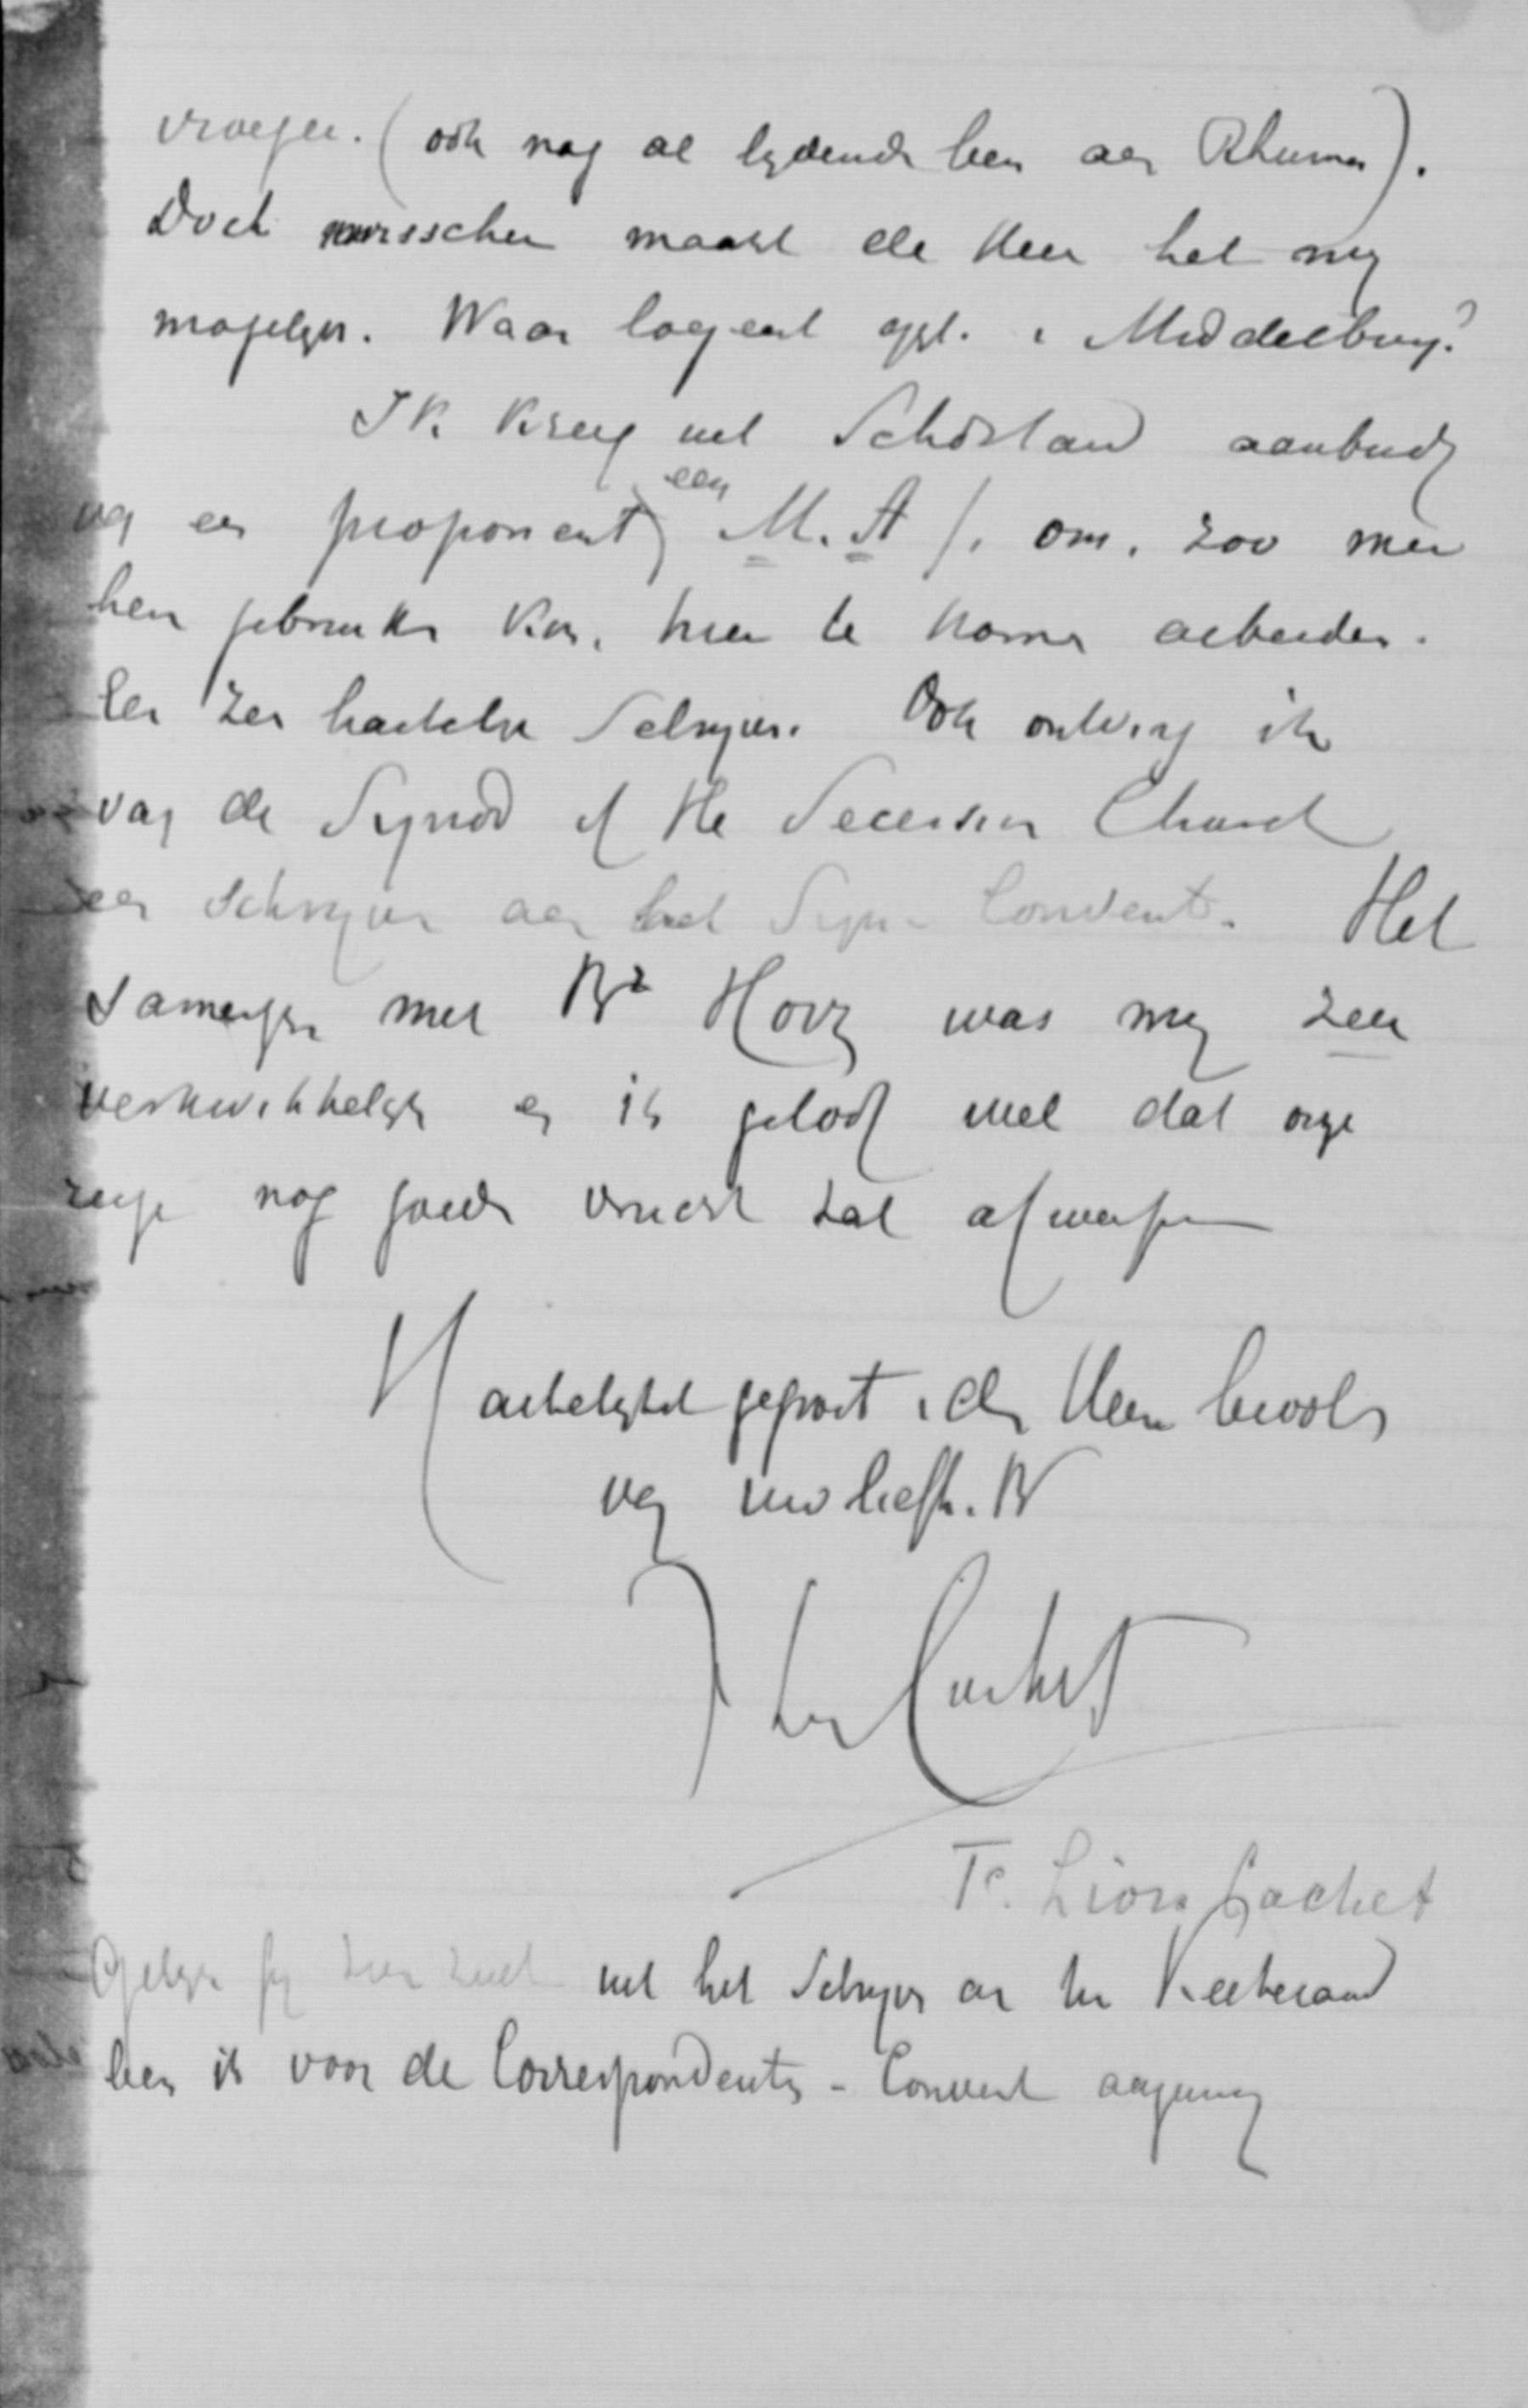 vroeger. (ook nog al lydende ben aan Rhuma).
Doch misschien maakt de Heer het my
mogelyk. Waar logeert gyl. i Middelburg?
Ik kreeg uit Schotland aanbod
van een proponent, een M.A /. om, zoo men
hem gebruiken kan, hier te komen arbeiden.
Een zeer hartelyk schryven. Ook ontving ik
van de Synod of the Secession Church
een schryven aan het Syn. Convent. Het
samenzyn met Br Hovy was my zeer
verkwikkelyk en ik geloof wel dat onze
reize nog goede vrucht zal afwerpen
Hartelykst gegroet. den Heere bevolen
van uw liefh. Br
F Lion Cachet
F. Lion Cachet
uit het schryven an den Kerkeraad
ben ik voor de Correspondents-Convent